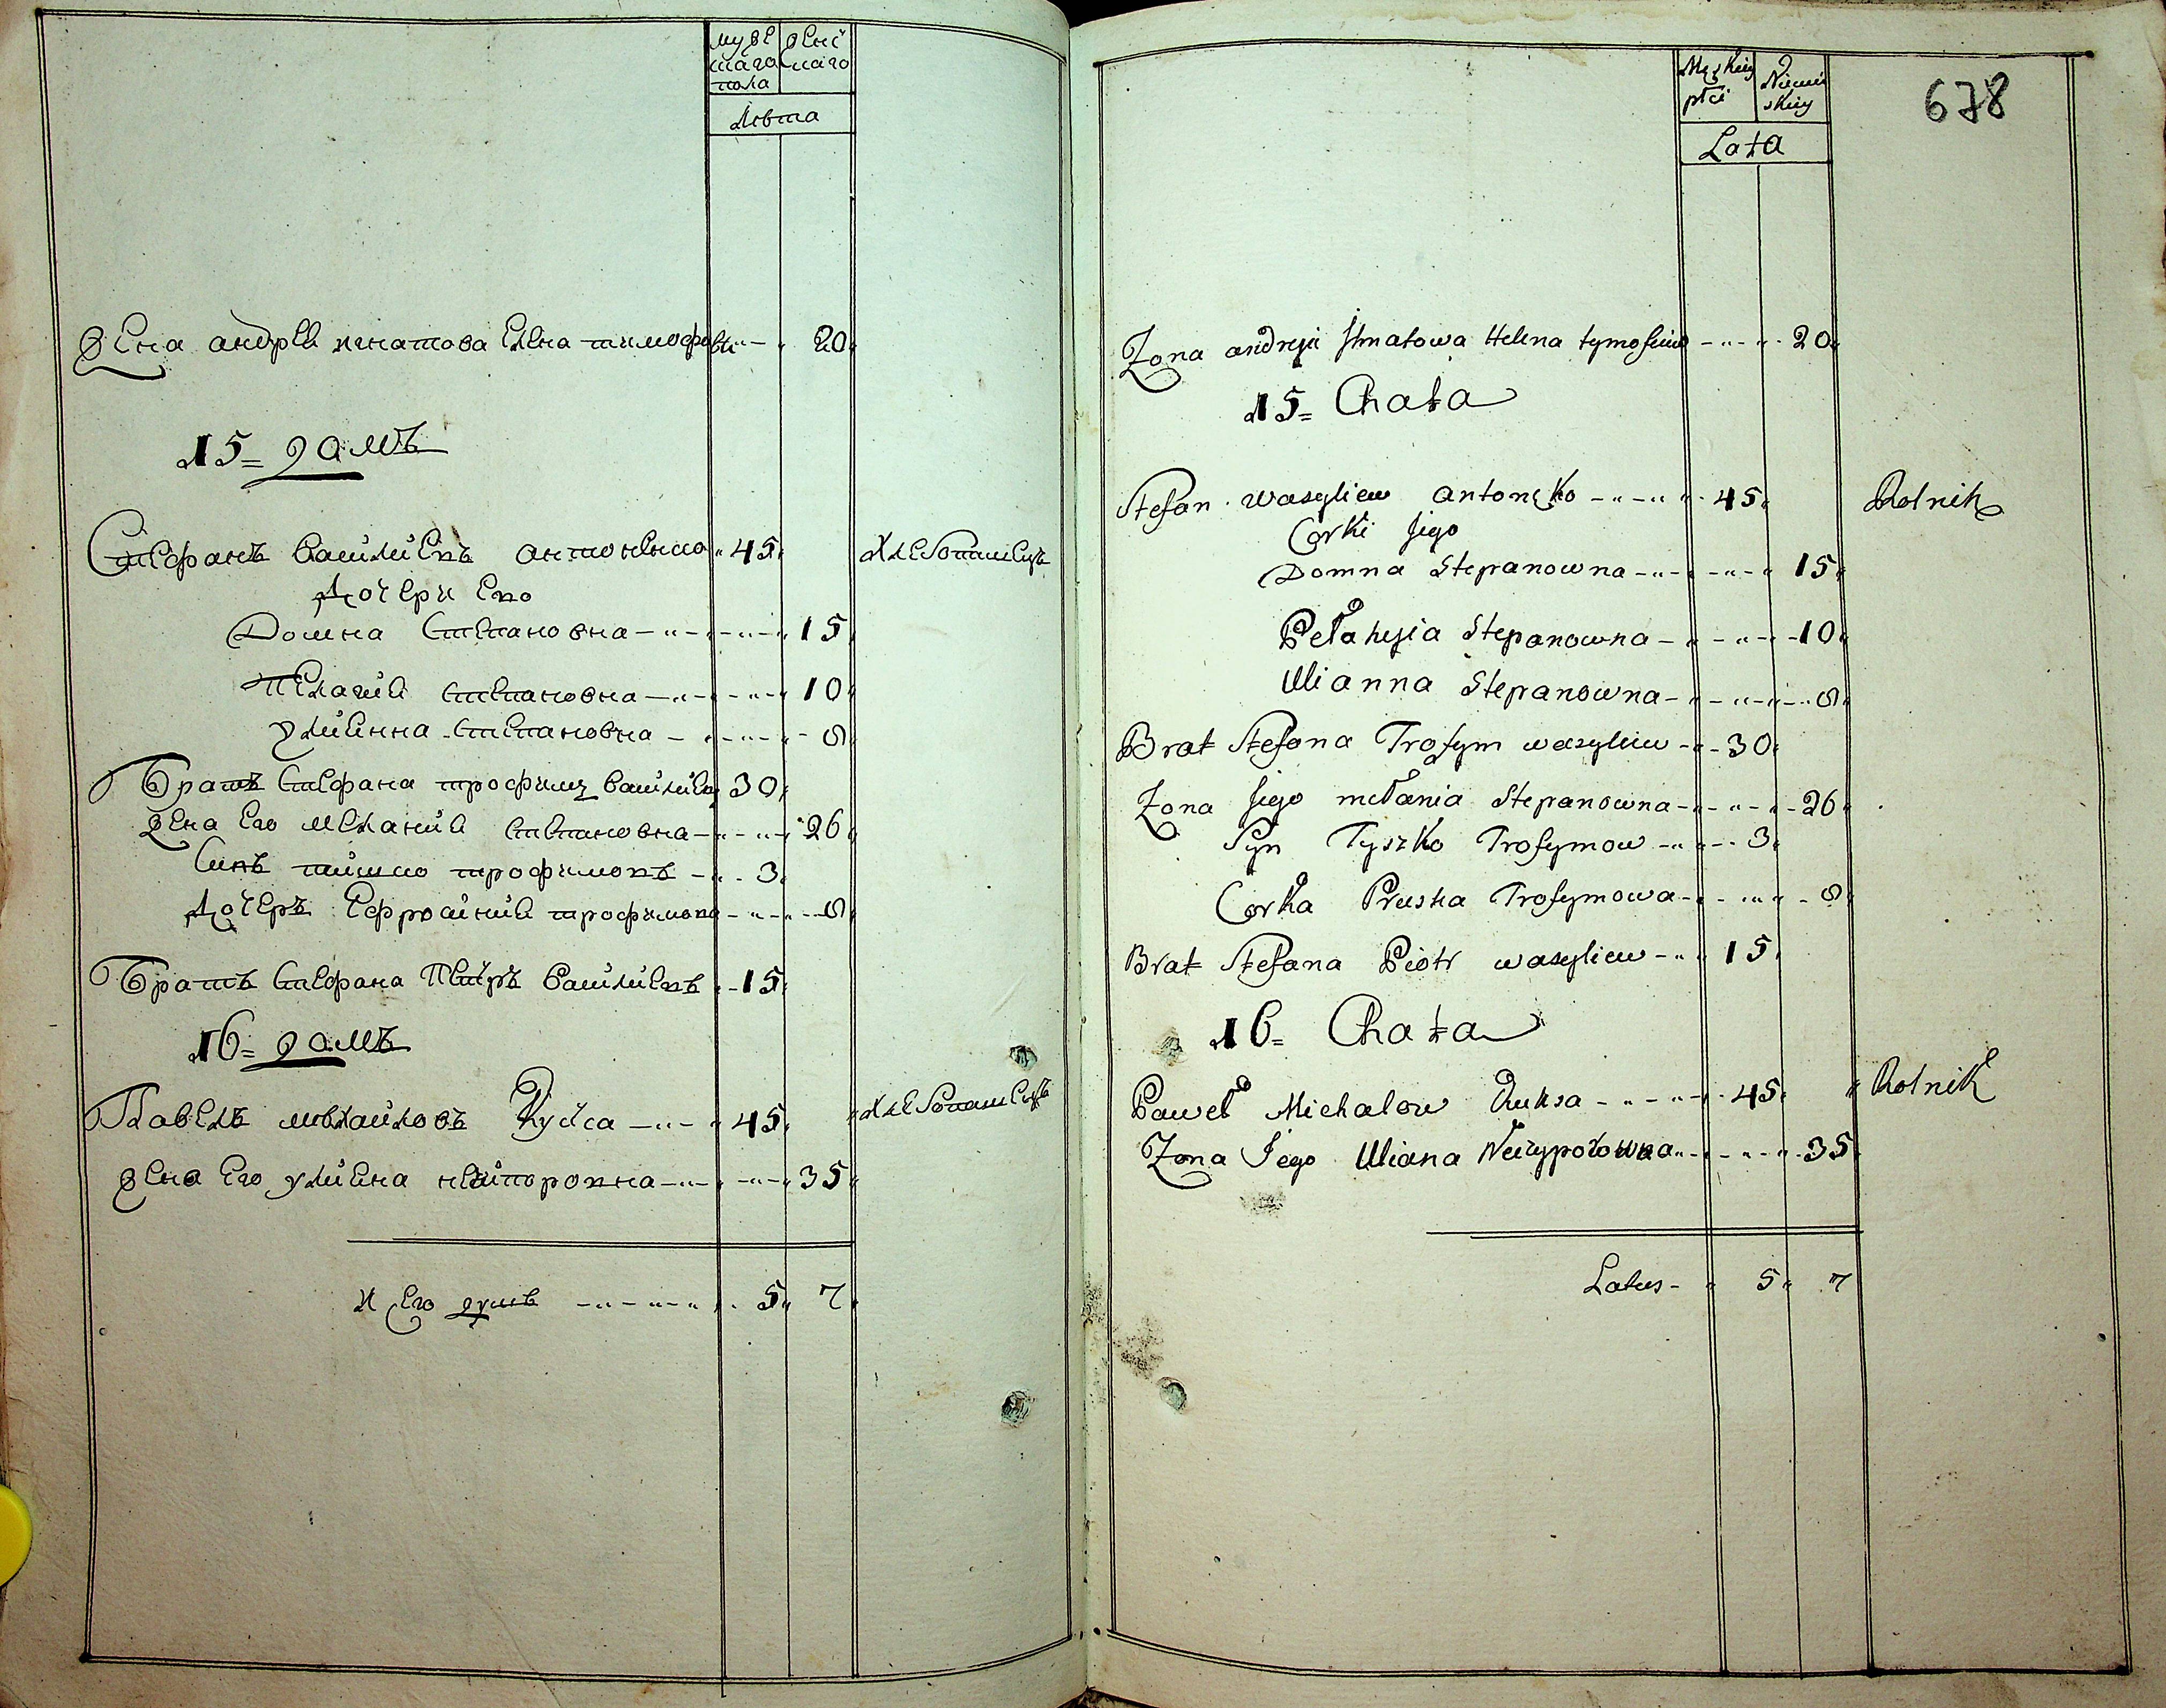 муже
скаго
пола
жен
скаго
лѣта
жена андрея игнатова Елена тимофѣев 20
15 = домъ
Стефанъ василіевъ антоненко 45 хлебопашецъ
дочери Его
Домна степановна 15
Пелагия степановна 10
улиянна степановна 8
Братъ стефана трофимъ василиев 30
жена Его мелания степановна 26
Синъ тишко трофимовъ 3
дочеръ Ефросиния трофимова 8
Братъ стефана Петръ василиевъ 15
16 = домъ
Павелъ михайловъ Кукса 45 хлебопашецъ
жена Его улиена нечипоровна 35
И Его душъ 5 7
Męzkiey
płci
Niewie
skiey
678
Lata
Zona andreja Ihnatowa Helena tymofeiew 20
15 = Chata
Stefan wasyliew antonęko 45 Rolnik
Corki Jego
Domna Stepanowna 15
Pełahyia Stepanowna 10
Ulianna Stepanowna 8
Brat Stefana Trofym wasyliew 30
Zona Jego mełania Stepanowna 26
Syn Tyszko Trofymow 3
Corka Pruska Trofymowa 8
Brat Stefana Piotr wasyliew 15
16 = Chata
Paweł Michalow Kuksa 45 Rolnik
Zona Jego Uliana Neczyporowna 35
Latus 5 7